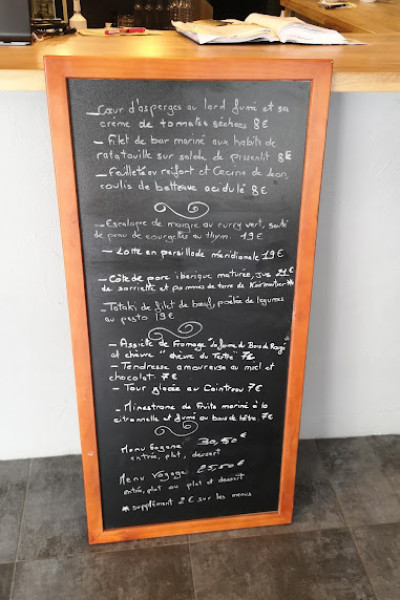 _ Cœur d'asperges au lard fumé et sa
crème de tomates séchées 8€
_ Filet de bar mariné aux habits de
ratatouille sur salade de pissenlit 8€
_ Feuilleté au raifort et Cecina de Léon,
coulis de betterave acidulé 8€
_ Escalope de maigre au curry vert, sauté
de peau de courgettes au thym. 19€
_ Lotte en persillade méridionale 19€
_ Côte de porc ibérique maturée, jus 21€
de sarriette et pommes de terre de Noirmoutier*
_ Tataki de filet de bœuf, poêlée de légumes
au pesto 19€
_ Assiette de Fromage "la ferme du Bois de Rozé"
et chèvre "chèvre du Tertre" 7€
_ Tendresse amoureuse au miel et
chocolat 7€
_ Tour glacée au Cointreau 7€
_ Minestrone de Fruits mariné à la
citronnelle et fumé au bois de hêtre 7€
Menu 30,50€
entrée, plat, dessert
Menu Voyage 25,50€
entrée, plat ou plat et dessert
* supplément 2€ sur les menus